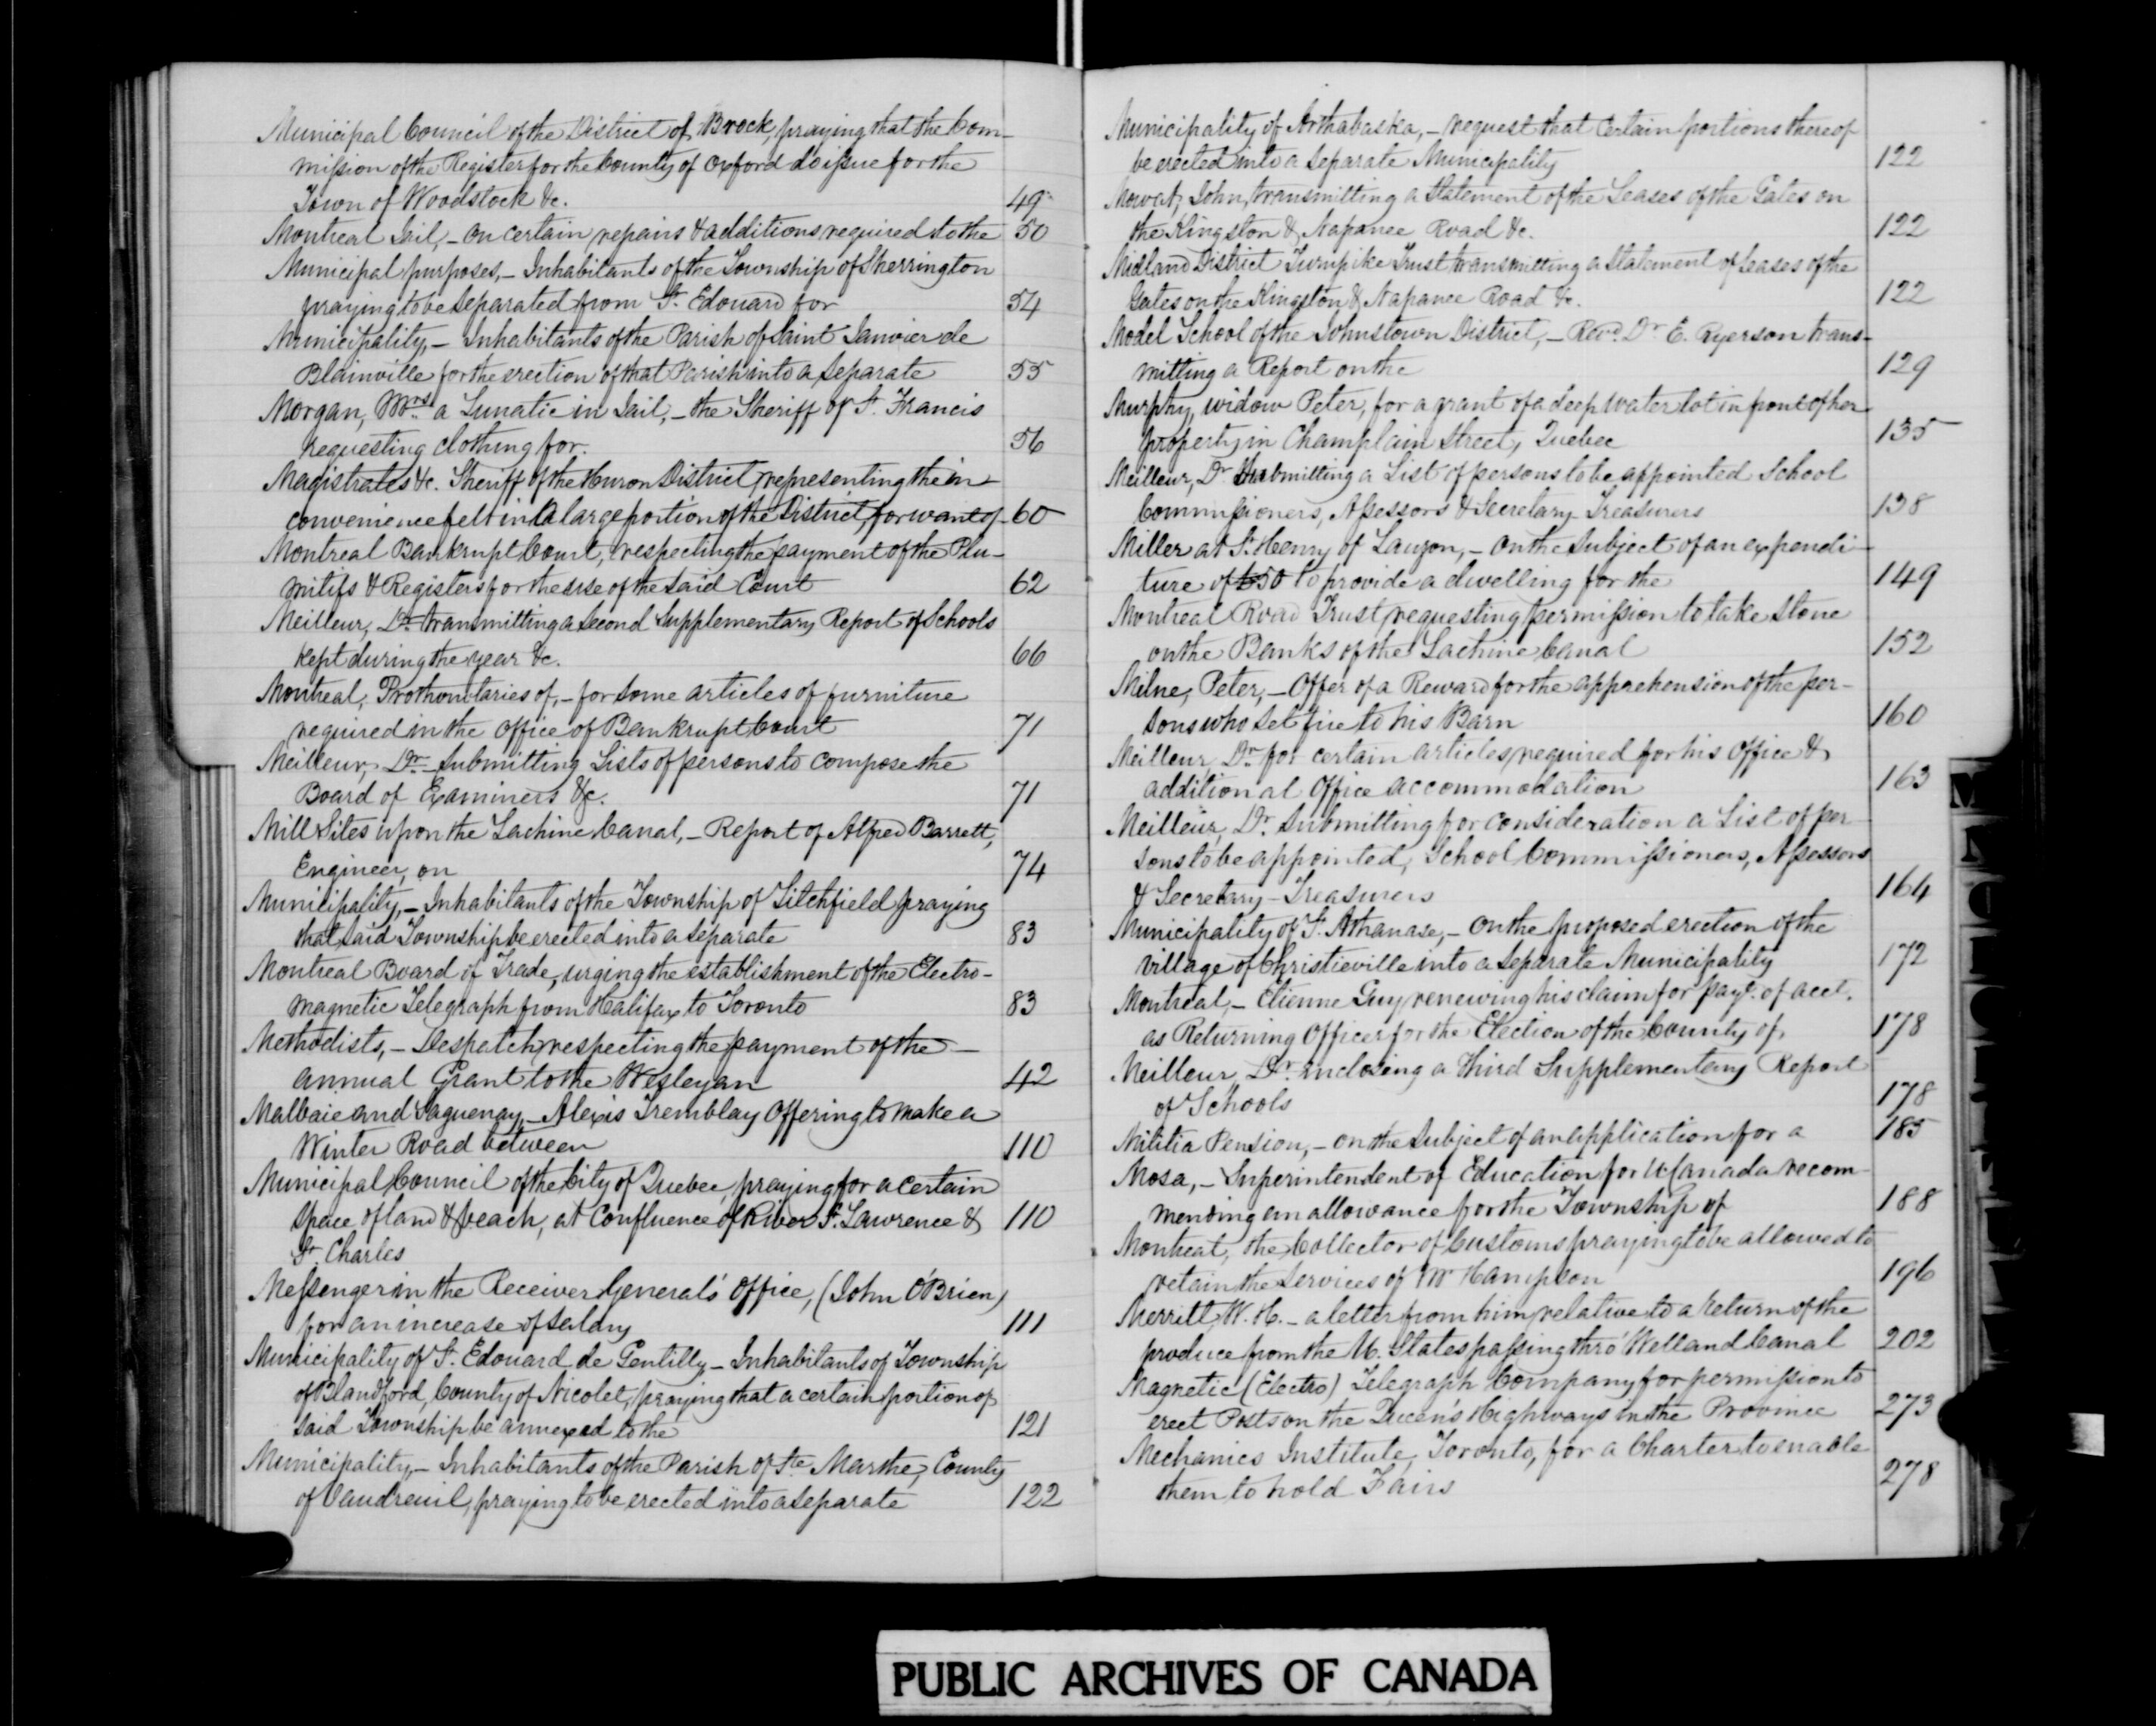 Municipal Council of the District of Brock, praying that the Com-
mission of the Register for the County of Oxford do issue for the
Town of Woodstock &c. 49
Montreal Jail, - On certain repairs & additions required to the 50
Municipal purposes, - Inhabitants of the Township of Sherrington
praying to be separated from St. Edouard for 54
Municipality, - Inhabitants of the Parish of Saint Janvier de
Blainville for the erection of that Parish into a separate 55
Morgan, Mrs. a Lunatic in Jail, - the Sheriff of St. Francis
requesting clothing for. 56
Magistrates &c. Sheriff of the Huron District, representing the in-
convenience felt in a large portion of the District, for want of 60
Montreal Bankrupt Court, respecting the payment of the Plu-
mitifs & Registers for the use of the said Court 62
Meilleur, Dr. transmitting a second Supplementary Report of Schools
kept during the year &c. 66
Montreal, Prothonotaries of, - for some articles of furniture
required in the Office of Bankrupt Court 71
Meilleur, Dr. submitting Lists of persons to compose the
Board of Examiners &c. 71
Mill Sites upon the Lachine Canal, - Report of Alfred Barrett,
Engineer, on 74
Municipality, - Inhabitants of the Township of Litchfield praying
that said Township be erected into a separate 83
Montreal Board of Trade, urging the establishment of the Electro-
magnetic Telegraph from Halifax to Toronto 83
Methodists, - Despatch respecting the payment of the -
Annual Grant to the Wesleyan 42
Malbaie and Saguenay, - Alexis Tremblay Offering to make a
Winter Road between 110
Municipal Council of the City of Quebec, praying for a certain
space of land & beach, at Confluence of River St. Lawrence & 110
St. Charles
Messenger in the Receiver General's Office, (John O'Brien)
for an increase of salary 111
Municipality of St. Edouard de Gentilly - Inhabitants of Township
of Blandford, County of Nicolet, praying that a certain portion of
said Township be annexed to the 121
Municipality, - Inhabitants of the Parish of Ste. Marthe, County
of Vaudreuil, praying to be erected into a separate 122
Municipality of Arthabaska, - request that certain portions thereof
be erected into a separate Municipality 122
Mowat, John, transmitting a Statement of the Leases of the Gates on
the Kingston & Napanee Road &c. 122
Midland District Turnpike Trust transmitting a Statement of Leases of the
Gates on the Kingston & Napanee Road &c. 122
Model School of the Johnstown District, - Revd. Dr. E. Ryerson trans-
mitting a Report on the 129
Murphy, widow Peter, for a grant of a deep water lot in front of her
property in Champlain Street, Quebec 135
Meilleur, Dr. Submitting a List of persons to be appointed School
Commissioners, Assessors & Secretary-Treasurers 138
Miller at St. Henry of Lauzon, - On the subject of an expendi-
ture of £50 to provide a dwelling for the 149
Montreal Road Trust, requesting permission to take stone
on the Banks of the Lachine Canal 152
Milne, Peter, - Offer of a Reward for the apprehension of the per-
sons who set fire to his Barn 160
Meilleur, Dr. for certain articles, required for his Office &
additional Office accommodation 163
Meilleur, Dr. Submitting for consideration a List of per-
sons to be appointed, School Commissioners, Assessors
& Secretary-Treasurers 164
Municipality of St. Athanase, - On the proposed erection of the
village of Christieville into a separate Municipality 172
Montreal, - Etienne Guy, renewing his claim for payt. of acct.
as Returning Officer for the Election of the County of, 178
Meilleur, Dr. inclosing a third Supplementary Report
of Schools 178
Militia Pension, - on the subject of an application for a 185
Mosa, - Superintendent of Education for U Canada recom-
mending an allowance for the Township of 188
Montreal, the Collector of Customs praying to be allowed to
retain the services of Mr Hampson 196
Merritt, W. H. - a letter from him, relative to a return of the
produce from the U. States passing thro' Welland Canal 202
Magnetic (Electro) Telegraph Company for permission to
erect Posts on the Queen's Highways in the Province 273
Mechanics Institute, Toronto, for a Charter to enable
them to hold Fairs 278
M
PUBLIC ARCHIVES OF CANADA